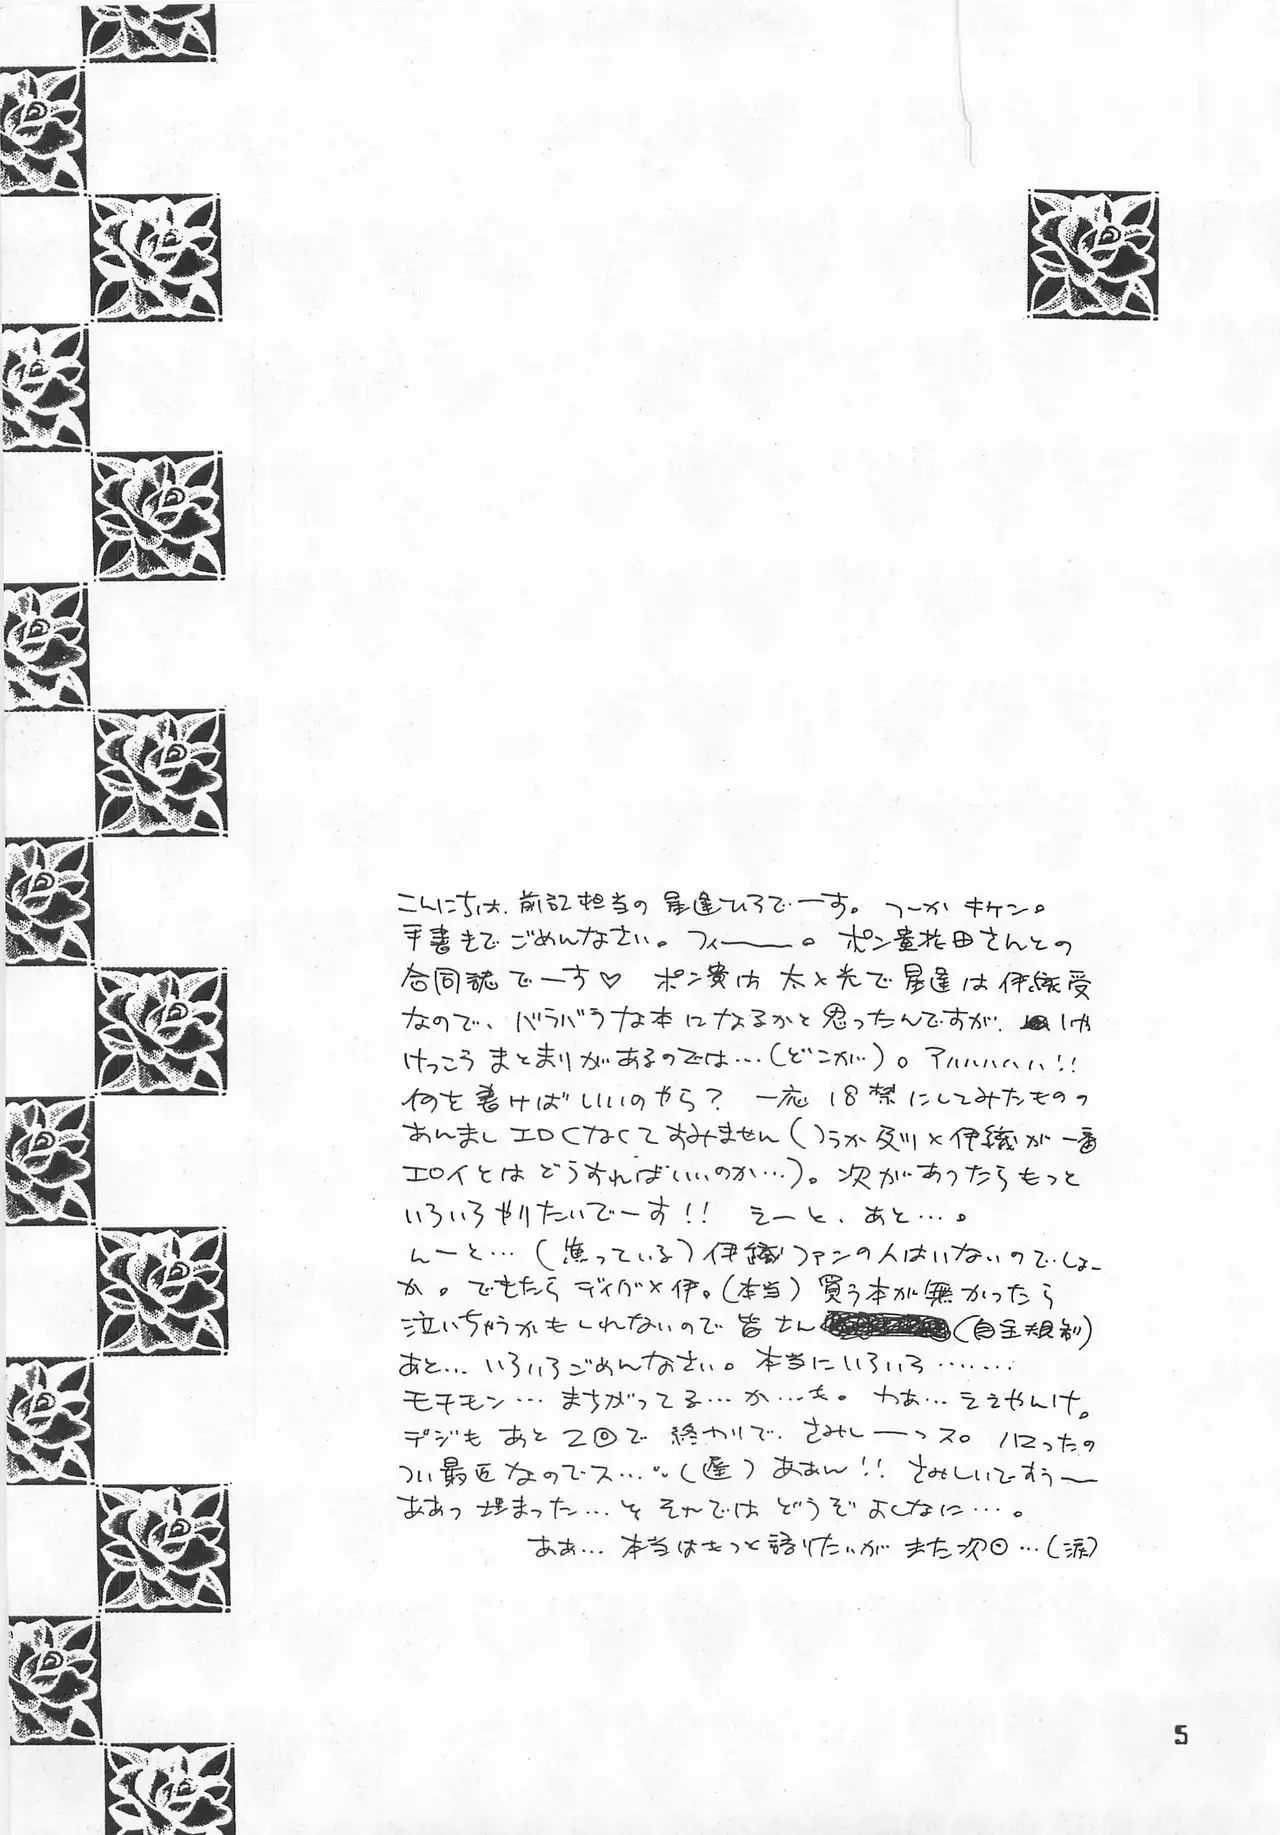 こんにちは、前記担当の星逢ひろでーす。つーかキケン。
手書きでごめんなさい。フィーー。ポン貴花田さんとの
合同誌でーす♡ ポン貴は太と光で星逢は伊織受
なので、バラバラな本になるかと思ったんですが、
けっこうまとまりがあるのでは…(どこが)。アハハハハハ!!
何を書けばいいのやら? 一応18禁にしてみたものの
あんましエロくなくてすみません(つうか及川×伊織が一番
エロイとはどうすればいいのか…)。次があったらもっと
いろいろやりたいでーす!! えーと、あと…。
んーと…(焦っている)伊織ファンの人はいないのでしょー
か。でもたらディガ×伊。(本当)買う本が無かったら
泣いちゃうかもしれないので皆さん(自主規制)
あと…いろいろごめんなさい。本当にいろいろ……
モチモン…まちがってる…か…も。わあ…ええやんけ。
デジもあと2回で終わりで、さみしーーっス。ハマったの
つい最近なのでス…。(遅)ああん!! さみしいですぅー
ああっ埋まった…とそれではどうぞよしなに…。
ああ…本当はもっと語りたいがまた次回…(涙)
5